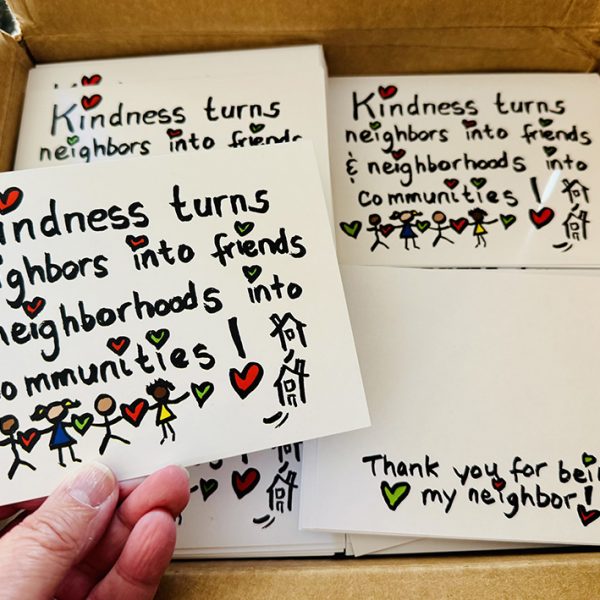 Kindness turns
neighbors into friends
Kindness turns
neighbors into friends
& neighborhoods into
communities!
Kindness turns
neighbors into friends
neighborhoods into
communities!
Thank you for being
my neighbor!